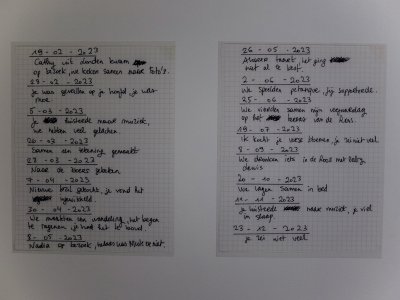 19 - 02 - 2023
Cathy uit Londen kwam
op bezoek, we keken samen naar foto's.
28 - 02 - 2023
Je was gevallen op je hoofd, je was
moe.
5 - 03 - 2023
je luisterde naar muziek,
We hebben veel gelachen.
20 - 03 - 2023
Samen een tekening gemaakt
28 - 03 - 2023
Naar de bakker geweest
7 - 04 - 2023
Nieuwe bril gekocht, je vond het
30 - 04 - 2023
We maakten een wandeling, het begon
te regenen, je had het te koud.
8 - 05 - 2023
Nadia op bezoek, helaas was
26 - 05 - 2023
het ging
niet al te best.
2 - 06 - 2023
We speelden petanque, jij supporterde.
25 - 06 - 2023
We vierden samen mijn verjaardag
op het terras van de Roos.
19 - 07 - 2023
Ik kocht je verse bloemen, je zei niet veel
8 - 09 - 2023
We dronken iets in de Roos met
20 - 10 - 2023
We lagen samen in bed
11 - 11 - 2023
je luisterde naar muziek, je viel
in slaap.
23 - 12 - 2023
je zei niet veel